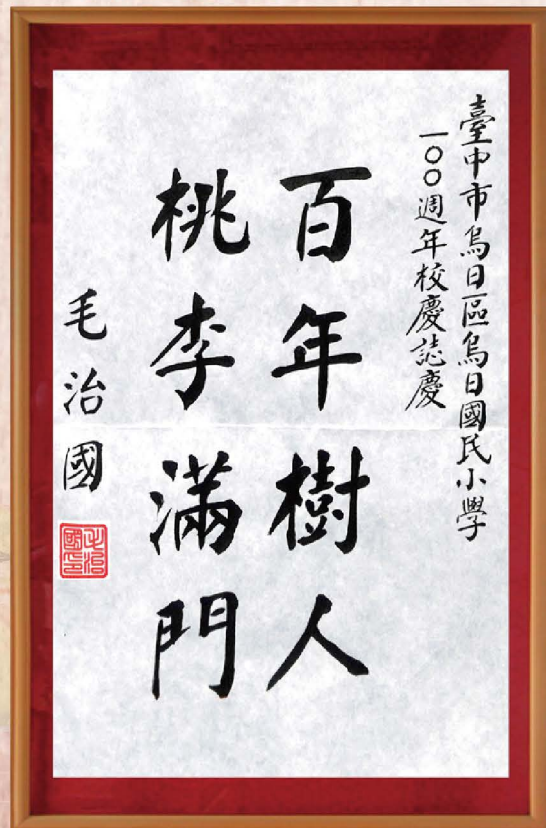 臺中市烏日區烏日國民小學
一〇〇週年校慶誌慶
百年樹人
桃李滿門
毛治國
毛治國印